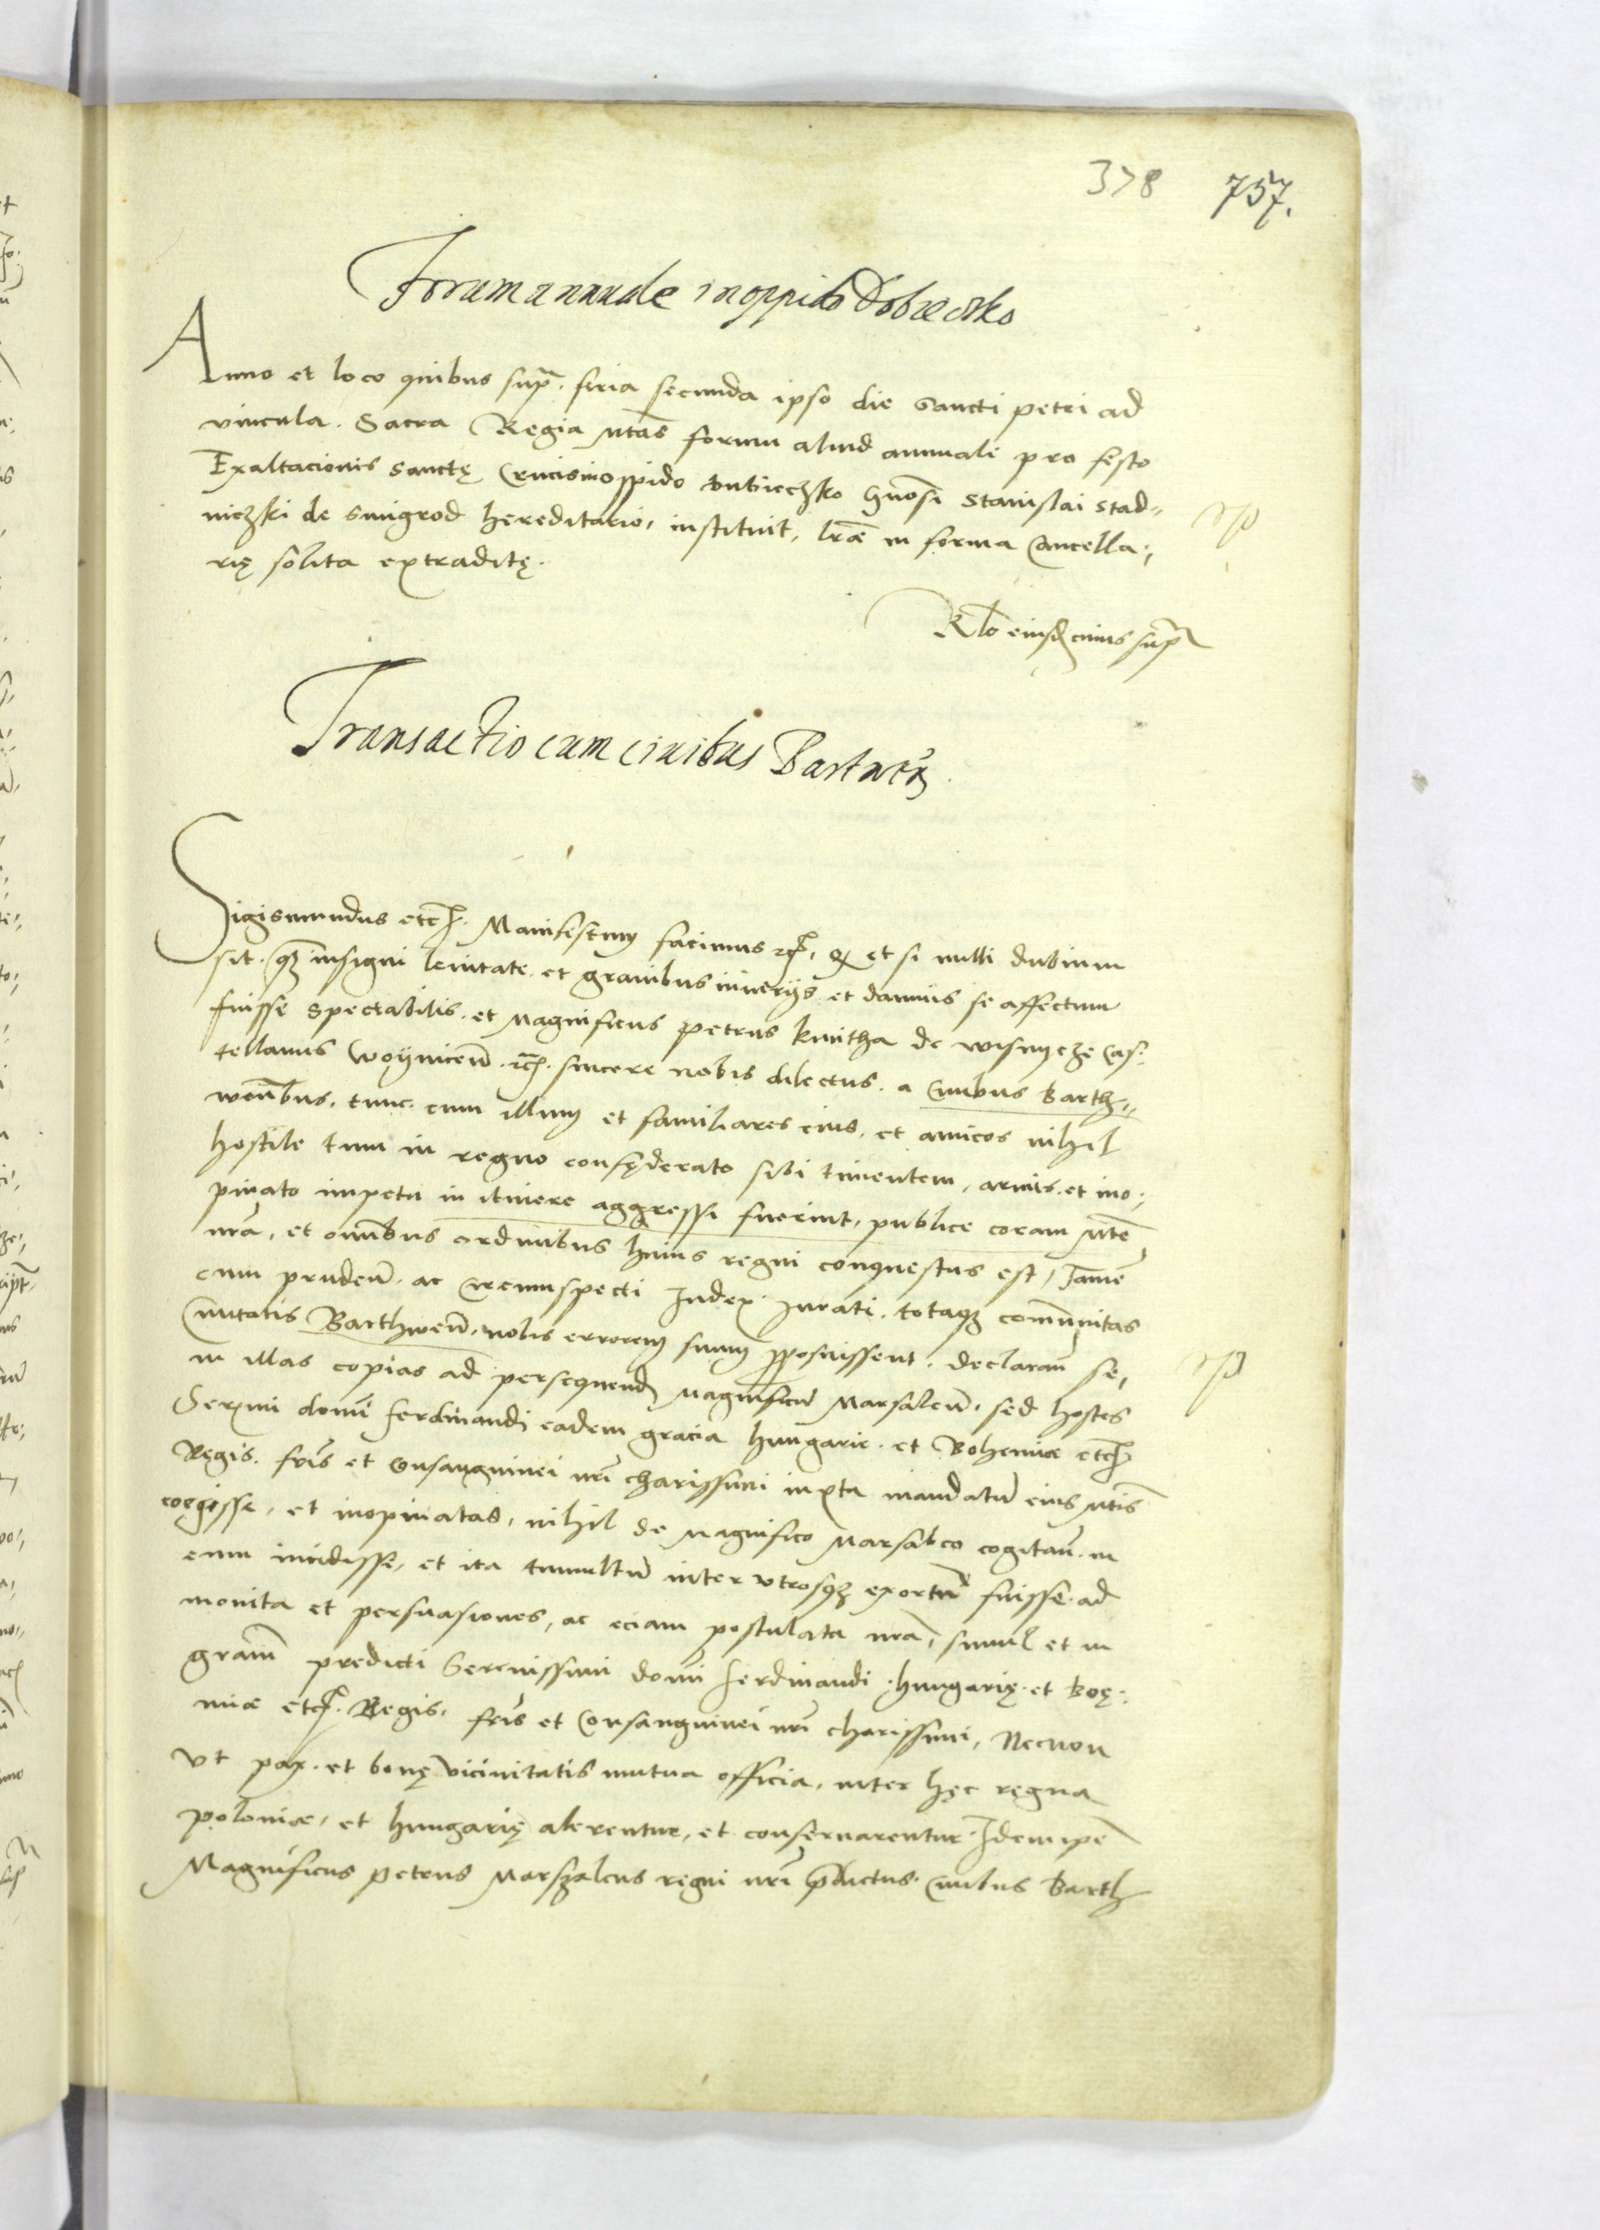 378 757.
Forum annuale in oppido Dobieczko
Anno et loco quibus supra. feria secunda ipso die Sancti petri ad
vincula. Sacra Regia Mtas forum aliud annuale pro festo
Exaltacionis Sanctę Crucis in oppido Dubieczko Gnosi Stanislai Stad„
niczki de Smigrod hereditario, instituit, lrae in forma Cancella„
rię solita extraditę.
Rlo eiusd cuius supra
Transactio cum ciuibus Bartuen
Sigismundus etc. Manifestum facimus etc, q et si nulli dubium
sit. q insigni leuitate et grauibus iniuriis et damnis se affectum
fuisse Spectabilis. et Magnificus Petrus kmitha de wisnycze Cas„
tellanus Woyniceñ. etc. sincere nobis dilectus. a Ciuibus Barth„
weñbus, tunc. cum illum et familiares eius, et amicos nihil
hostile tum in regno confęderato sibi timentem, armis. et ino„
pinato impetu in itinere aggressi fuerint, publice coram Mte
nra, et omnibus ordinibus huius regni conquestus est, Tame
cum prudeñ. ac Circumspecti Iudex. Iurati. totaq communitas
Ciuitatis Barthweñ, nobis errorem suum exposuissent. declarañ se,
in illas copias ad persequend Magnificu Marsalcu, sed hostes
Sermi domi ferdinandi eadem gracia hungarie. et Bohemiae etc
Regis. fris et Consanguinei nri charissimi iuxta mandatu eius Mtis
coegisse, et inopinatas, nihil de Magnifico Marsalco cogitañ. in
eum incidisse, et ita tumultu inter vtrosq exortu fuisse. ad
monita et persuasiones, ac eciam postulata nra, simul et in
gram predicti Serenissimi domi ferdinandi. hungarię. et Boę„
miae etc. Regis, fris et Consanguinei nri charissimi, Necnon
vt pax. et bonę vicinitatis mutua officia, inter hęc regna
poloniae, et hungarię alerentur, et conseruarentur. Idem ipe
Magnificus petrus Marszalcus regni nri pdictus. Ciuibus Barth